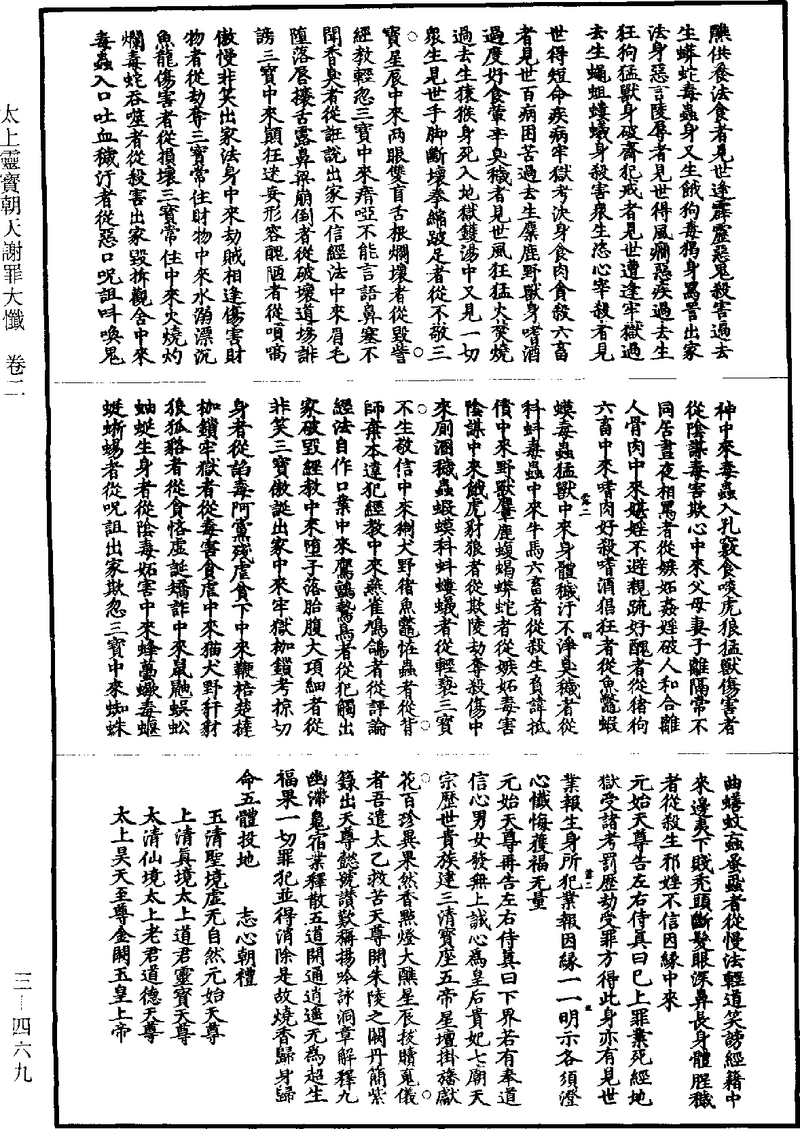 醮供養法食者見世逢霹靂惡鬼殺害過去
生蟒蛇毒蟲身又生餓狗毒獦身罵詈出家
法身惡言陵辱者見世得風癎惡疾過去生
狂狗猛獸身破齋犯戒者見世遭逢牢獄過
去生蠅蛆螻蟻身殺害衆生恣心宰殺者見
世得短命疾病牢獄考決身食肉貪殺六畜
者見世百病困苦過去生麋鹿野獸身嗜酒
過度好食葷辛臭穢者見世風狂猛火焚燒
過去生猿猴身死入地獄鑊湯中又見一切
衆生見世手脚斷壞拳縮跛足者從不敬三
寶星辰中來兩眼雙盲舌根爛壞者從毀訾
經教輕忽三寶中來瘖啞不能言語鼻塞不
聞香臭者從誑說出家不信經法中來眉毛
墮落唇㩧舌露鼻梁崩倒者從破壞道場誹
謗三寶中來顛狂迷妄形容醜陋者從嗔罵
傲慢非笑出家法身中來劫賊相逢傷害財
物者從劫奪三寶常住財物中來水溺漂沉
魚龍傷害者從損壞三寶常住中來火燒灼
爛毒蛇吞噬者從殺害出家毀拆觀舍中來
毒蟲入口吐血穢汙者從惡口呪詛呌喚鬼
神中來毒蟲入孔竅食啖虎狼猛獸傷害者
從陰謀毒害欺心中來父母妻子離隔常不
同居晝夜相罵者從嫉妬姦婬破人和合離
人骨肉中來媱婬不避親疏好醜者從猪狗
六畜中來嗜肉好殺嗜酒猖狂者從魚鼈蝦
蟆毒蟲猛獸中來身體穢汙不淨臭穢者從
科蚪毒蟲中來牛馬六畜者從殺生負諱抵
債中來野獸麞鹿蝮蝎蟒蛇者從嫉妬毒害
陰謀中來餓虎豺狼者從欺陵劫奪殺傷中
來厠溷穢蟲蝦蟆科蚪螻蟻者從輕褻三寶
不生敬信中來猘犬野猪魚鼈恠蟲者從背
師棄本違犯經教中來燕雀鳩鴿者從評論
經法自作口業中來鷹鷂鷙鳥者從犯觸出
家破毀經教中來墮子落胎腹大項細者從
非笑三寶傲誕出家中來牢獄枷鎖考掠切
身者從謟毒阿黨殘虐貪下中來鞭棓楚撻
枷鎖牢獄者從毒害貪虐中來猫犬野犴豺
狼狐貉者從貪悋虛誕矯詐中來鼠鼬蜈蚣
蚰蜒生身者從陰毒妬害中來蜂蠆蠍毒蝘
蜓蜥蜴者從呪詛出家欺忽三寶中來蜘蛛
曲蟮蚊蝱蚤蝨者從慢法輕道笑謗經籍中
來邊夷下賤禿頭斷髮眼深鼻長身體腥穢
者從殺生邪婬不信因緣中來
元始天尊告左右侍真曰已上罪業死經地
獄受諸考罰歷劫受罪方得此身亦有見世
業報生身所犯業報因緣一一明示各須澄
心懺悔獲福无量
元始天尊再告左右侍真曰下界若有奉道
信心男女發無上誠心為皇后貴妃七廟天
宗歷世貴族建三清寶座五帝星壇掛旛獻
花百珍異果然香點燈大醮星辰拔贖䰟儀
者吾遣太乙救苦天尊開朱陵之闕丹簡紫
籙出天尊懿號讚歎稱揚吟詠洞章解釋九
幽滯䰟宿業釋散五道開通逍遙无為超生
福果一切罪犯並得消除是故燒香歸身歸
命五體投地　志心朝禮
玉清聖境虛无自然元始天尊
上清眞境太上道君靈寶天尊
太清仙境太上老君道德天尊
太上昊天至尊金闕玉皇上帝
太上靈寶朝天謝罪大懺　卷二
三—四六九